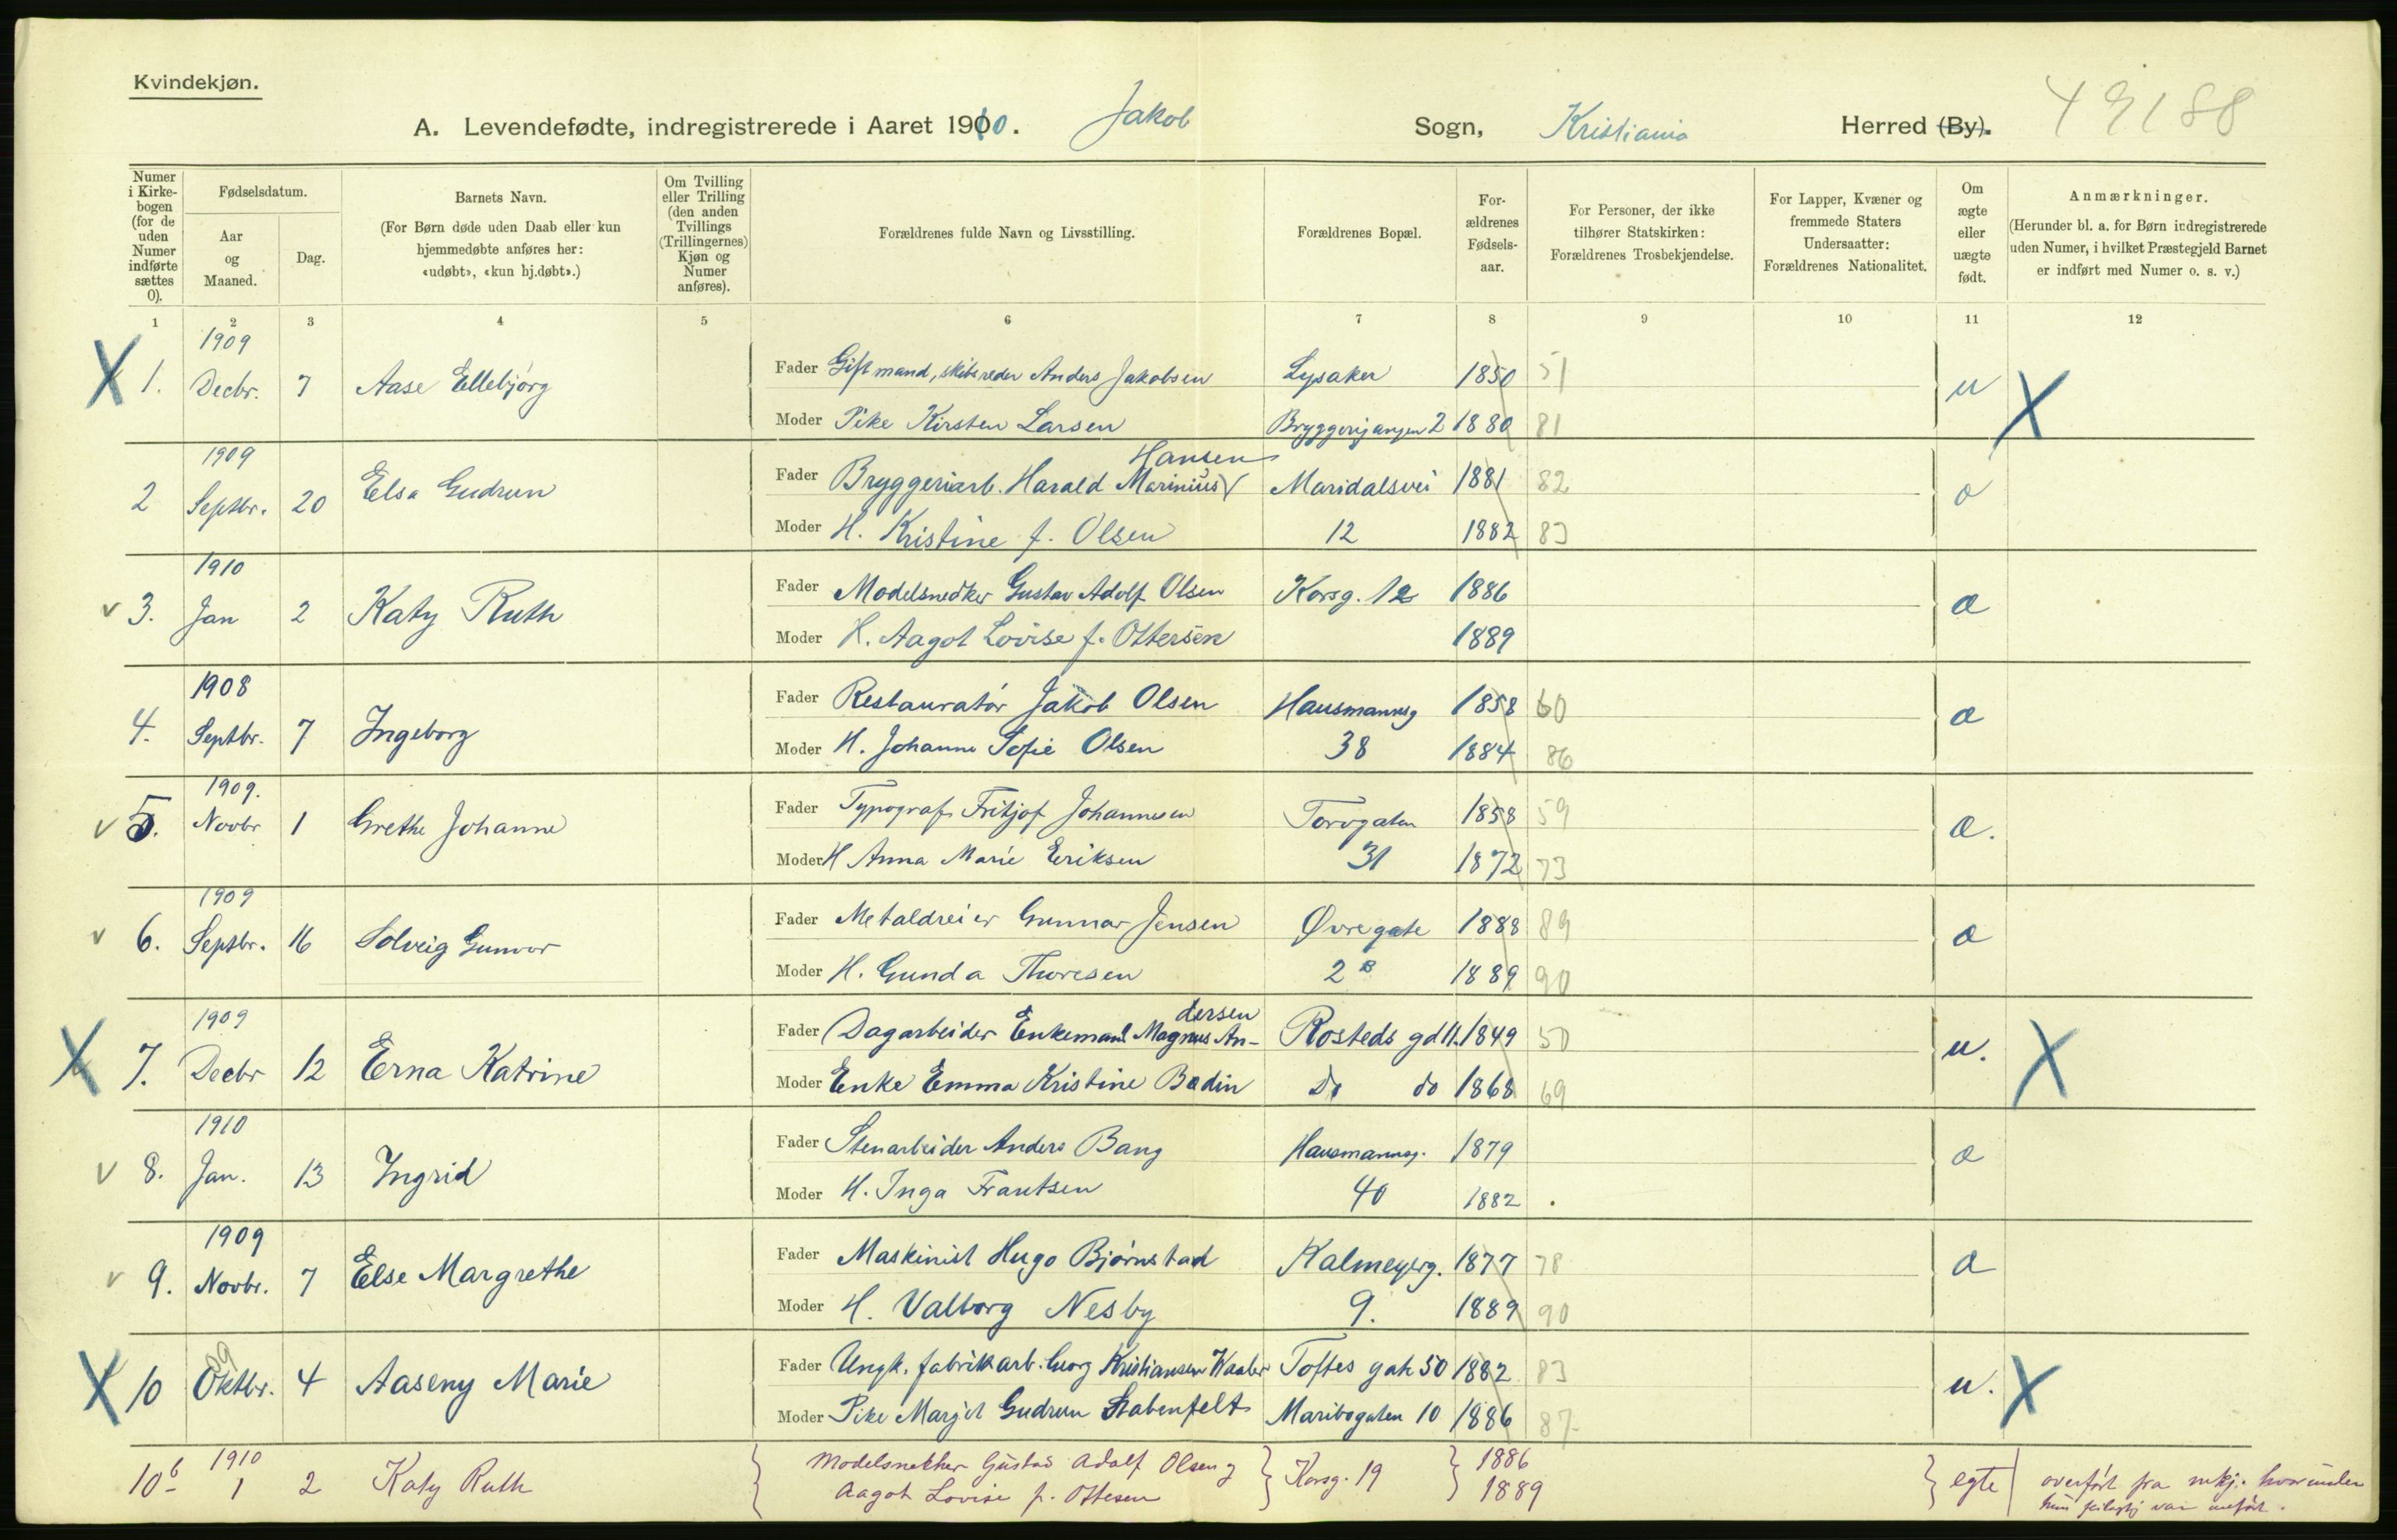 Kvindekjøn.
A. Levendefødte, indregistrerede i Aaret 1910. Jakob Sogn, Kristiania Herred (By). 49188
Numer i Kirkebogen (for de uden Numer indførte sættes 0).
Fødselsdatum.
Aar og Maaned.
Dag.
Barnets Navn.
(For Børn døde uden Daab eller kun hjemmedøbte anføres her: «udøbt», «kun hj.døbt».)
Om Tvilling eller Trilling (den anden Tvillings (Trillingernes) Kjøn og Numer anføres).
Forældrenes fulde Navn og Livsstilling.
Forældrenes Bopæl.
Forældrenes Fødselsaar.
For Personer, der ikke tilhører Statskirken: Forældrenes Trosbekjendelse.
For Lapper, Kvæner og fremmede Staters Undersaatter: Forældrenes Nationalitet.
Om ægte eller uægte født.
Anmærkninger.
(Herunder bl. a. for Børn indregistrerede uden Numer, i hvilket Præstegjeld Barnet er indført med Numer o. s. v.)
1 2 3 4 5 6 7 8 9 10 11 12
1909
X 1. Decbr. 7 Aase Ellebjörg Fader Gift mand, skibsreder Anders Jakobsen Lysaker 1850 51 u X
Moder Pike Kirsten Larsen Bryggerigangen 2 1880 81
1909 Hansen
2 Septbr. 20 Elsa Gudrun Fader Bryggeriarb. Harald Marinius Maridalsvei 1881 82 æ
Moder H. Kristine f. Olsen 12 1882 83
1910
v 3. Jan 2 Katy Ruth Fader Modelsnedker Gustav Adolf Olsen Korsg. 12 1886 æ
Moder H. Aagot Lovise f. Ottersen 1889
1908
4. Septbr. 7 Ingeborg Fader Restauratör Jakob Olsen Hausmannsg 1858 60 æ
Moder H. Johanne Sofie Olsen 38 1884 86
1909.
v 5. Novbr 1 Grethe Johanne Fader Typograf Fritjof Johannesen Torvgaten 1858 59 æ.
Moder H Anna Marie Eriksen 31 1872 73
1909
v 6. Septbr. 16 Solveig Gunvor Fader Metaldreier Gunnar Jensen Øvregate 1888 89 æ
Moder H. Gunda Thoresen 2 B 1889 90
1909 dersen
X 7. Decbr 12 Erna Katrine Fader Dagarbeider Enkemand Magnus An- Rosteds gd 11. 1849 50 u. X
Moder Enke Emma Kristine Bodin Do do 1868 69
1910
v 8. Jan. 13 Ingrid Fader Stenarbeider Anders Bang Hausmannsg. 1879 æ
Moder H. Inga Frantsen 40 1882 .
1909
v 9. Novbr. 7 Else Margrethe Fader Maskinist Hugo Bjørnstad Kalmeyerg. 1877 78 æ
Moder H. Valborg Nesby 9. 1889 90
09
X 10 Oktbr. 4 Aaseny Marie Fader Ungk. fabrikkarb. Georg Kristiansen Kaabe Toftes gate 50 1882 83 u. X
Moder Pike Marjit Gudrun Stabenfelt Maribogaten 10 1886 87
10b 1910 1 2 Katy Ruth Modelsnekker Gustav Adolf Olsen og Korsg. 19 1886 egte overført fra mkj. hvorunder
Aagot Lovise f. Ottesen 1889 hun feilagtig var anført.